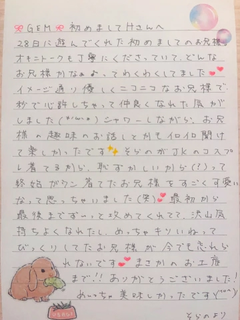 G&M 初めましてHさんへ
28日に遊んでくれた初めましてのお兄様♡
オキニトークも丁寧にくださっていて、どんな
お兄様かなぁ、ってわくわくしてました
イメージ通り優しくニコニコなお兄様で
秒で心許しちゃって仲良くなれた気がし
しました シャワーしながら、お兄
様の趣味のお話してからもイロイロ聞け
て楽しかったです そらのがJKのコスプ
レ着てるから、恥ずかしいから(?)って
終始ガウン着てたお兄様をすごく可愛い
なって思っちゃいました(笑) 最初から
最後まずーっと攻めてくれて、沢山気
持ちよくなれたし、めっちゃキツいねって
びっくりしてたお兄様が今でも忘れら
れないです まさかのお土産
まで!! ありがとうございました!
めっちゃ美味しかったです
そらのより